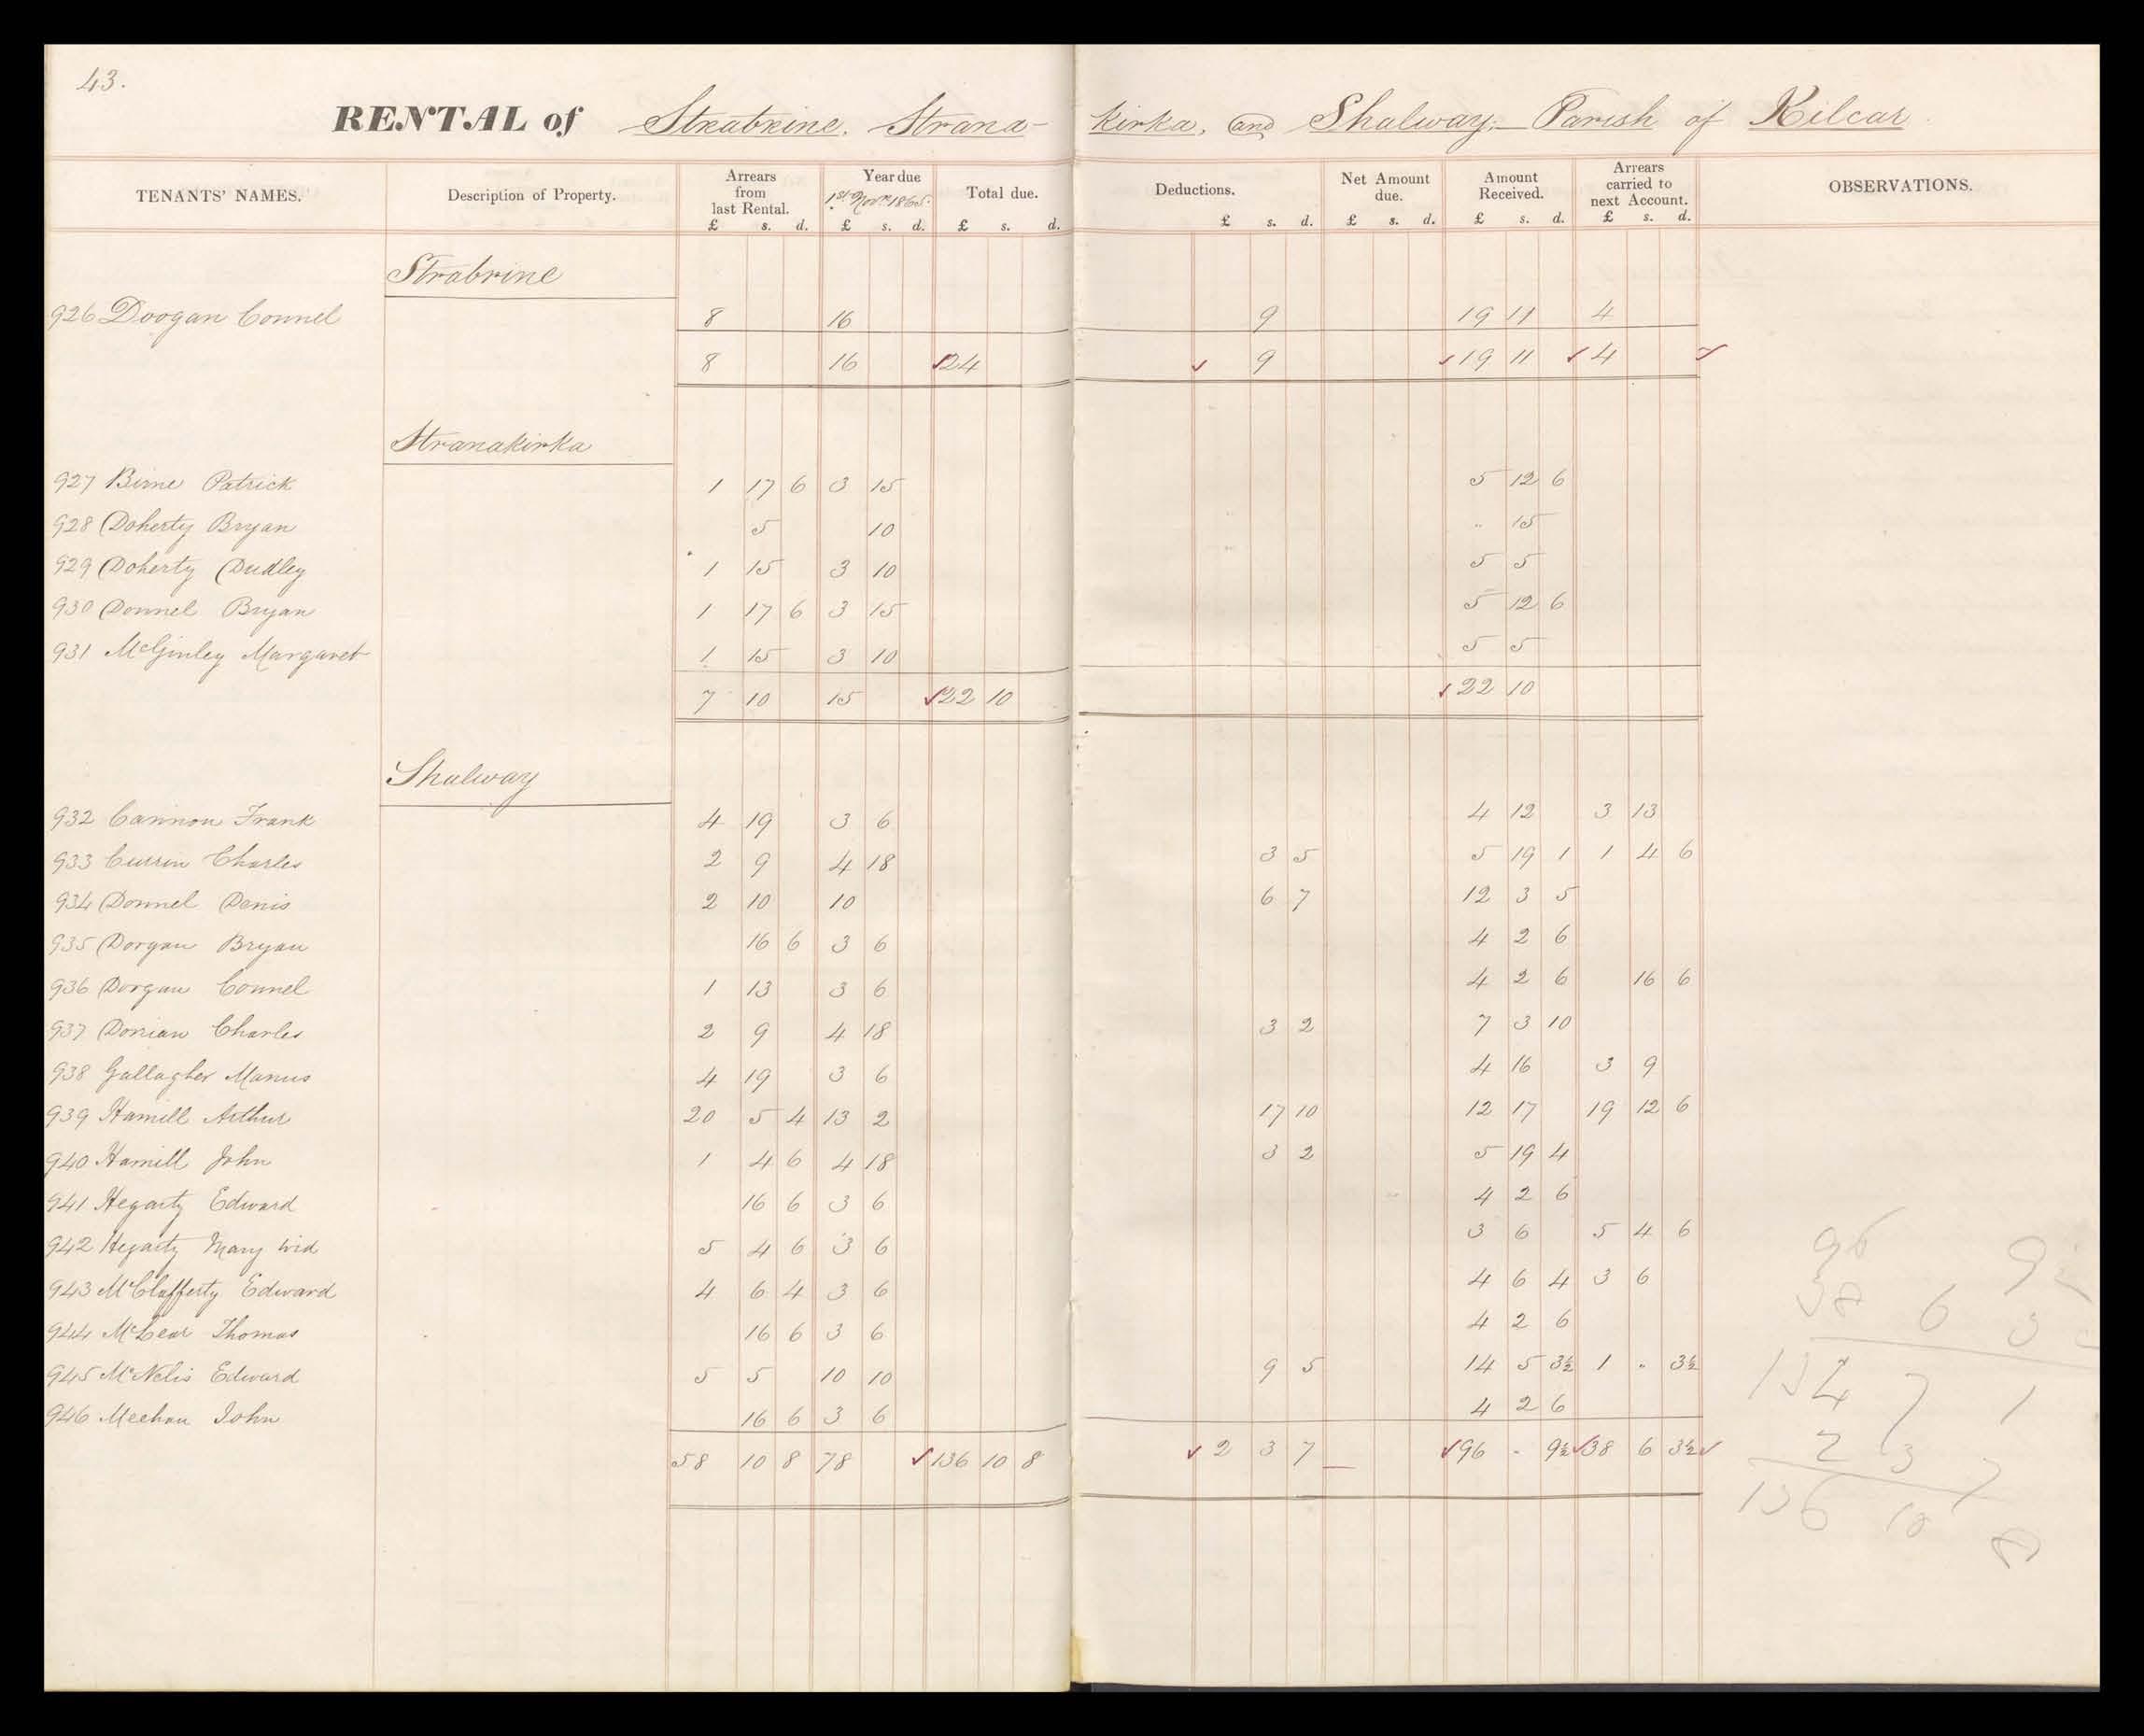 43.
RENTAL of Strabrine. Stranakirka, and Shalway. Parish of Kilcar
TENANTS' NAMES. Description of Property. Arrears from last Rental. Year due 1st Novr. 1865. Total due. Deductions. Net Amount due. Amount Received. Arrears carried to next Account. OBSERVATIONS.
£ s. d. £ s. d. £ s. d. £ s. d. £ s. d. £ s. d. £ s. d.
Strabrine
926 Doogan Connel 8 16 9 19 11 4
8 16 24 9 19 11 4
Stranakirka
927 Birne Patrick 1 17 6 3 15 5 12 6
928 Doherty Bryan 5 10 " 15
929 Doherty Dudley 1 15 3 10 5 5
930 Donnel Bryan 1 17 6 3 15 5 12 6
931 McGinley Margaret 1 15 3 10 5 5
7 10 15 22 10 22 10
Shalway
932 Cannon Frank 4 19 3 6 4 12 3 13
933 Currin Charles 2 9 4 18 3 5 5 19 1 1 4 6
934 Donnel Denis 2 10 10 6 7 12 3 5
935 Dorgan Bryan 16 6 3 6 4 2 6
936 Dorgan Connel 1 13 3 6 4 2 6 16 6
937 Dorrian Charles 2 9 4 18 3 2 7 3 10
938 Gallagher Manus 4 19 3 6 4 16 3 9
939 Hamill Arthur 20 5 4 13 2 17 10 12 17 19 12 6
940 Hamill John 1 4 6 4 18 3 2 5 19 4
941 Hegarty Edward 16 6 3 6 4 2 6
942 Hegarty Mary Wid 5 4 6 3 6 3 6 5 4 6
943 McClafferty Edward 4 6 4 3 6 4 6 4 3 6
944 McLear Thomas 16 6 3 6 4 2 6
945 McNelis Edward 5 5 10 10 9 5 14 5 3½ 1 " 3½
946 Meehan John 16 6 3 6 4 2 6
58 10 8 78 136 10 8 2 3 7 96 - 9½ 38 6 3½
96 9½
38 6 3
134 7 1
2 3 7
136 10 8